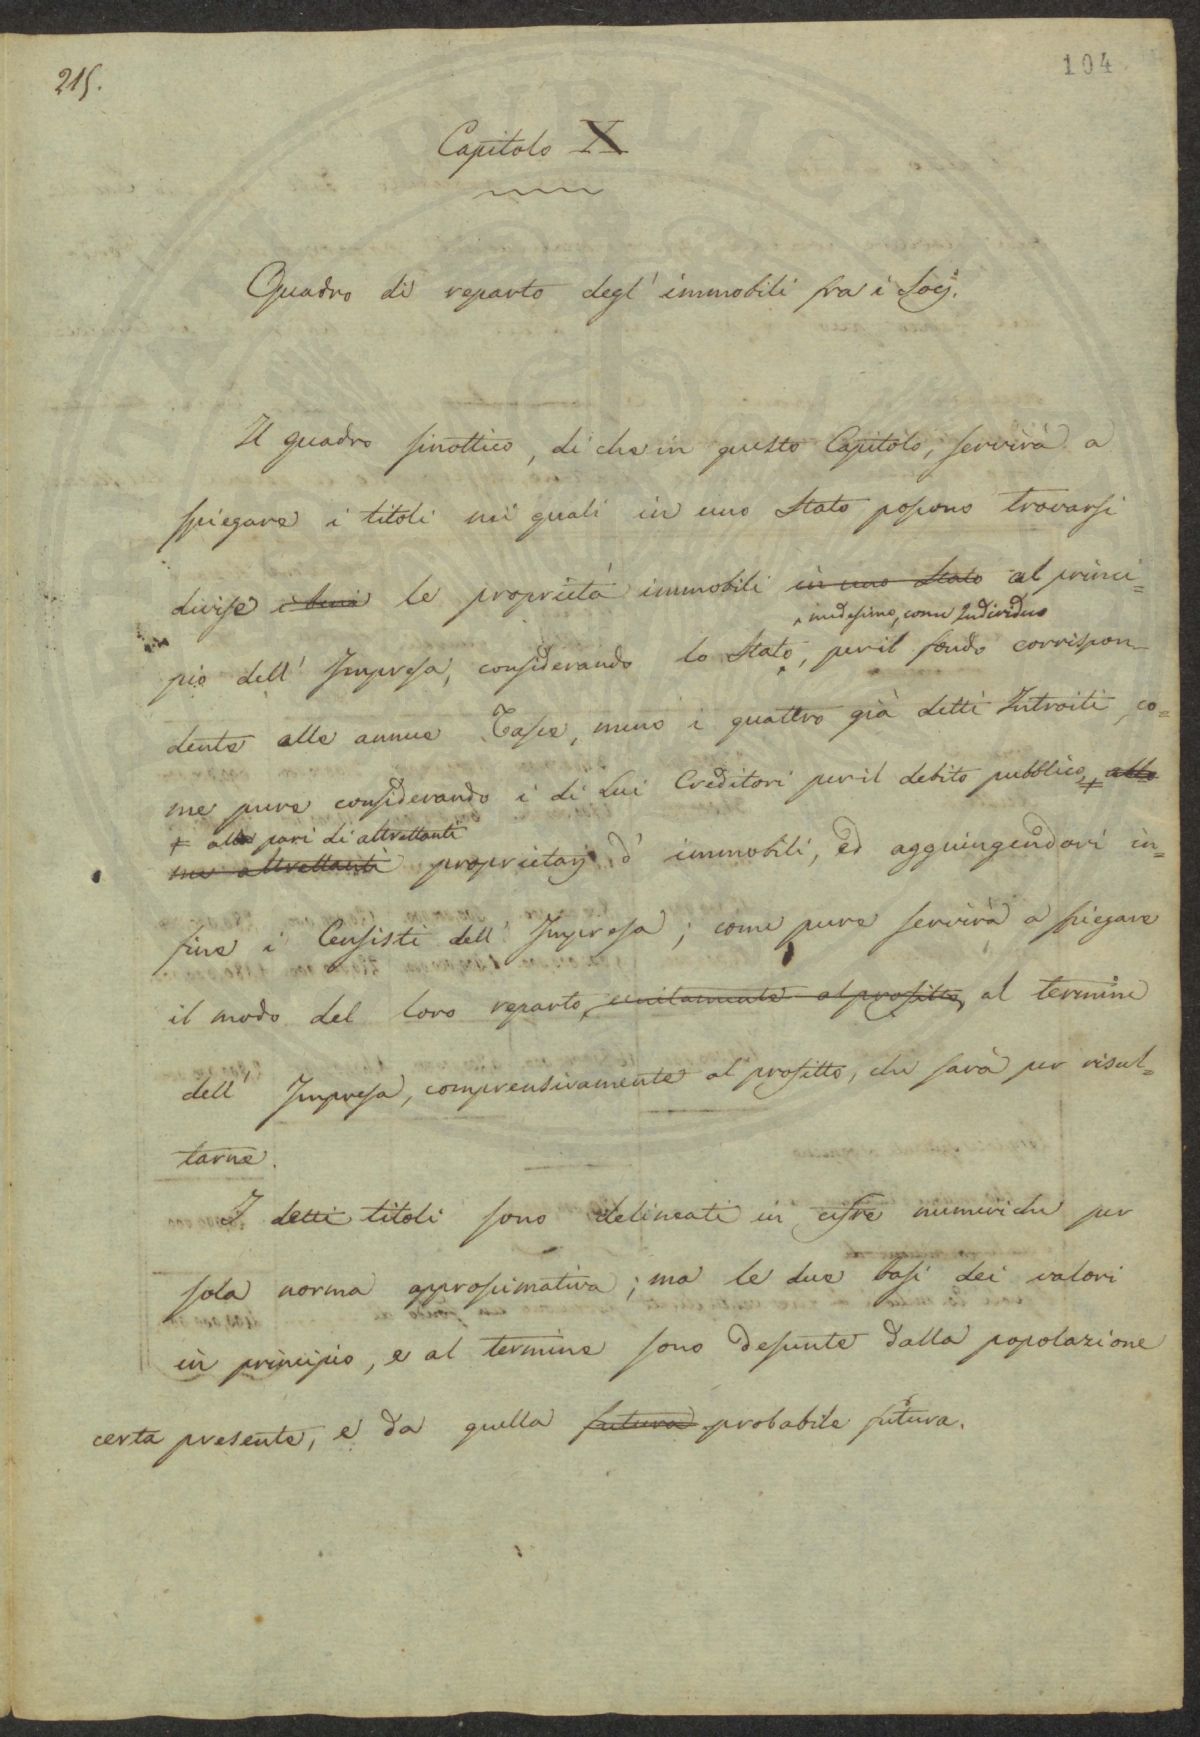 215.
104
Capitolo X
Quadro di reparto degl' immobili fra i Socj.
Il quadro sinottico, di che in questo Capitolo, servirà a
spiegare i titoli nei quali in uno Stato possono trovarsi
divise i beni le proprietà immobili in uno Stato al princi=
medesimo, come Individuo
pio dell' Impresa, considerando lo Stato, per il fondo corrispon-
dente alle annue Tasse, meno i quattro già detti Introiti, co=
me pure considerando i di Lui Creditori per il debito pubblico, alle
+ alla pari di altrettanti
me altrettanti proprietarj d' immobili, ed aggiungendovi in=
fine i Censisti dell' Impresa; come pure servirà a spiegare
il modo del loro reparto, unitamente al profitto, al termine
dell' Impresa, comprensivamente al profitto, che sarà per risul=
tarne.
I detti titoli sono delineati in cifre numeriche per
sola norma approssimativa; ma le due basi dei valori
in principio, e al termine sono desunte dalla popolazione
certa presente, e da quella futura probabile futura.